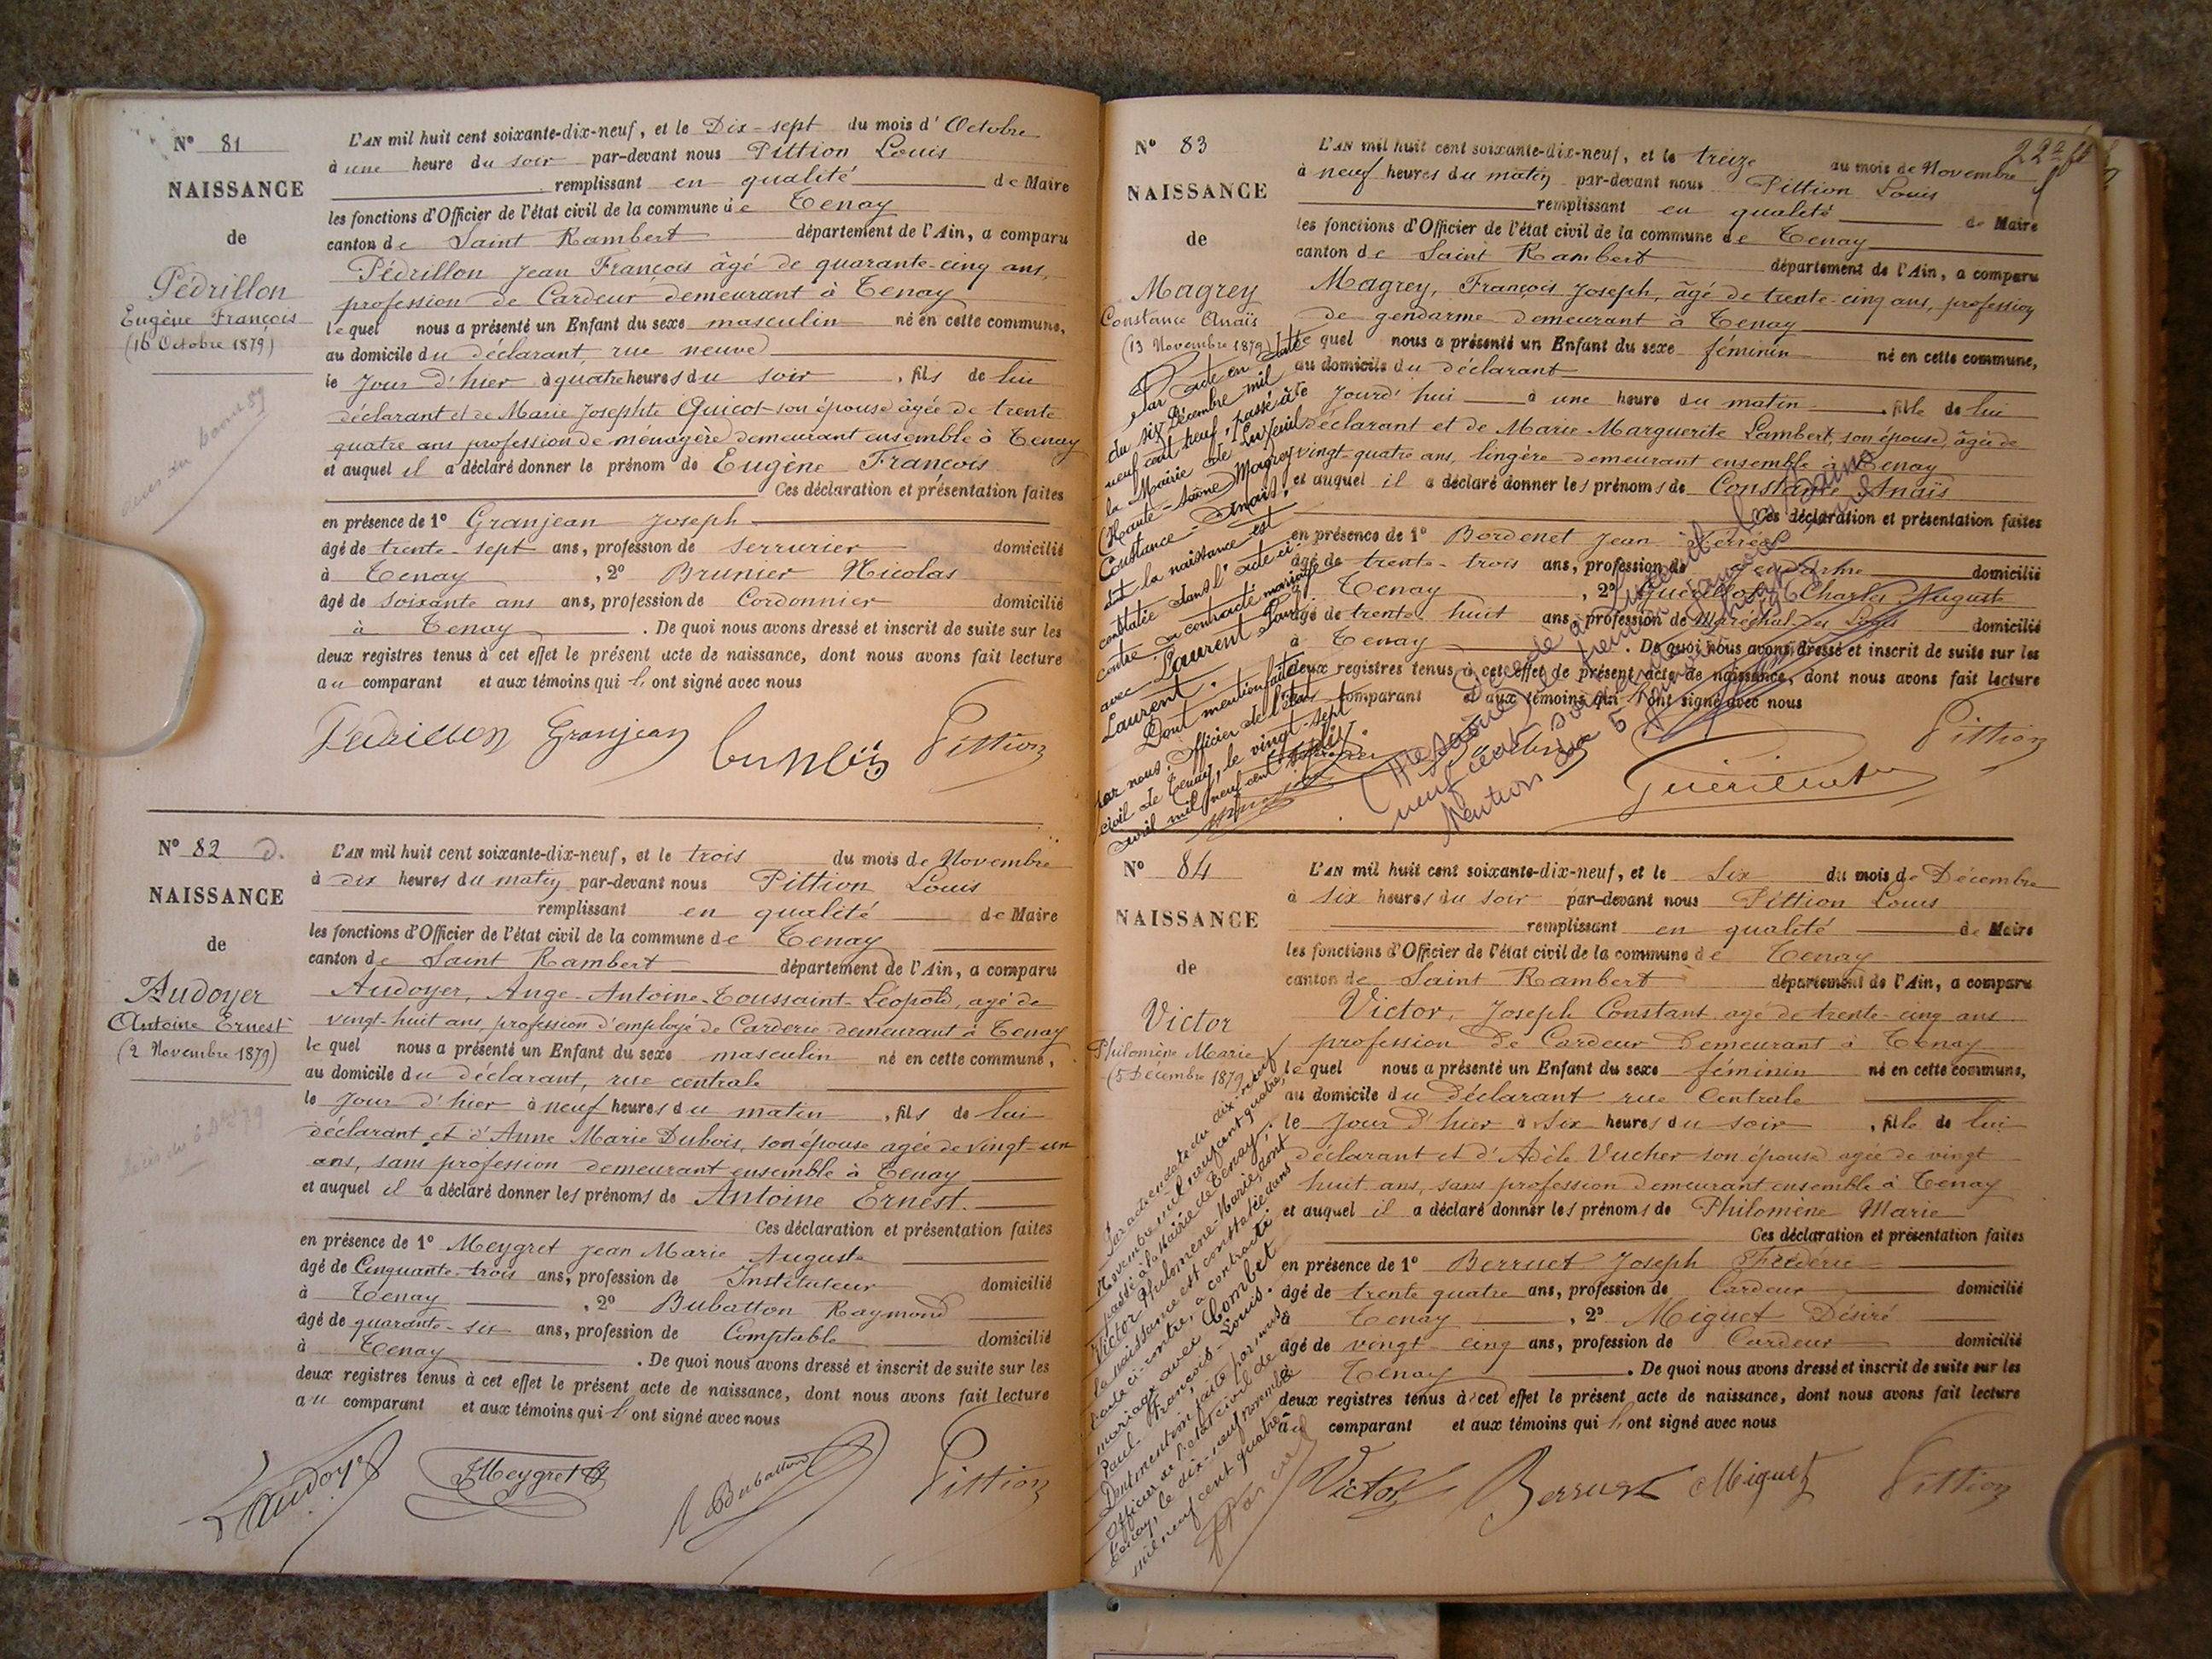 N° 81
NAISSANCE
de
Pédrillon
Eugène François
(16 Octobre 1879)
L'AN mil huit cent soixante-dix-neuf, et le Dix-sept du mois d'Octobre
à une heure du soir par-devant nous Pittion Louis
remplissant en qualité de Maire
les fonctions d'Officier de l'état civil de la commune de Tenay
canton de Saint Rambert département de l'Ain, a comparu
Pédrillon Jean François âgé de quarante-cinq ans,
profession de Cardeur demeurant à Tenay
lequel nous a présenté un Enfant du sexe masculin né en cette commune,
au domicile du déclarant, rue neuve
le jour d'hier à quatre heures du soir, fils de lui
déclarant et de Marie Josephte Guicot son épouse âgée de trente
quatre ans profession de ménagère demeurant ensemble à Tenay
et auquel il a déclaré donner le prénom de Eugène François
Ces déclaration et présentation faites
en présence de 1° Granjean Joseph
âgé de trente-sept ans, profession de serrurier domicilié
à Tenay, 2° Brunier Nicolas
âgé de soixante ans ans, profession de Cordonnier domicilié
à Tenay. De quoi nous avons dressé et inscrit de suite sur les
deux registres tenus à cet effet le présent acte de naissance, dont nous avons fait lecture
au comparant et aux témoins qui l'ont signé avec nous
Pedrillon Granjean Pittion
N° 82 D.
NAISSANCE
de
Audoyer
Antoine Ernest
(2 Novembre 1879)
L'AN mil huit cent soixante-dix-neuf, et le trois du mois de Novembre
à dix heures du matin par-devant nous Pittion Louis
remplissant en qualité de Maire
les fonctions d'Officier de l'état civil de la commune de Tenay
canton de Saint Rambert département de l'Ain, a comparu
Audoyer, Ange-Antoine-Toussaint-Léopold, agé de
vingt-huit ans, profession d'employé de Carderie demeurant à Tenay
lequel nous a présenté un Enfant du sexe masculin né en cette commune,
au domicile du déclarant, rue centrale
le jour d'hier à neuf heures du matin, fils de lui
déclarant et d'Anne Marie Dubois, son épouse agée de vingt-un
ans, sans profession demeurant ensemble à Tenay
et auquel il a déclaré donner les prénoms de Antoine Ernest.
Ces déclaration et présentation faites
en présence de 1° Meygret Jean Marie Auguste
âgé de Cinquante-trois ans, profession de Instituteur domicilié
à Tenay, 2° Bubatton Raymond
âgé de quarante-six ans, profession de Comptable domicilié
à Tenay. De quoi nous avons dressé et inscrit de suite sur les
deux registres tenus à cet effet le présent acte de naissance, dont nous avons fait lecture
au comparant et aux témoins qui l'ont signé avec nous
Audoyer JMeygret Bubatton Pittion
N° 83
NAISSANCE
de
Magrey
Constance Anaïs
(13 Novembre 1879)
Par acte en date
du six Décembre mil
neuf cent neuf, passé à
la Mairie de Luxeuil
(Haute-Saône) Magrey
Constance-Anaïs,
dont la naissance est
constatée dans l'acte ci-
contre a contracté mariage
avec Laurent
Laurent.
Dont mention faite
par nous, Officier de l'état
civil de Tenay, le vingt-sept
avril mil neuf cent
L'AN mil huit cent soixante-dix-neuf, et le treize du mois de Novembre
à neuf heures du matin par-devant nous Pittion Louis
remplissant en qualité de Maire
les fonctions d'Officier de l'état civil de la commune de Tenay
canton de Saint Rambert département de l'Ain, a comparu
Magrey, François Joseph, âgé de trente-cinq ans, profession
de gendarme demeurant à Tenay
lequel nous a présenté un Enfant du sexe féminin né en cette commune,
au domicile du déclarant
jourd'hui à une heure du matin, fille de lui
déclarant et de Marie Marguerite Lambert, son épouse, âgée de
vingt-quatre ans, lingère demeurant ensemble à Tenay
et auquel il a déclaré donner les prénoms de Constance Anaïs
Ces déclaration et présentation faites
en présence de 1° Bordenet Jean
âgé de trente-trois ans, profession de gendarme domicilié
à Tenay, 2° Guérillot Charles Auguste
âgé de trente huit ans, profession de Maréchal des Logis domicilié
à Tenay. De quoi nous avons dressé et inscrit de suite sur les
deux registres tenus à cet effet le présent acte de naissance, dont nous avons fait lecture
au comparant et aux témoins qui l'ont signé avec nous
Décédée à Luxeuil les Bains
(Hte Saône) le trente janvier
Guérillot Pittion
N° 84
NAISSANCE
de
Victor
Philomène Marie
(5 Décembre 1879)
Par acte en date du dix-neuf
Novembre mil neuf cent quatre,
passé à la Mairie de Tenay,
Victor Philomène-Marie, dont
la naissance est constatée dans
l'acte ci-contre, a contracté
mariage avec Combet
Paul-François-Louis.
Dont mention faite par nous
Officier de l'état civil de
Tenay, le dix-neuf novembre
mil neuf cent quatre
L'AN mil huit cent soixante-dix-neuf, et le Six du mois de Décembre
à six heures du soir par-devant nous Pittion Louis
remplissant en qualité de Maire
les fonctions d'Officier de l'état civil de la commune de Tenay
canton de Saint Rambert département de l'Ain, a comparu
Victor, Joseph Constant agé de trente-cinq ans
profession de Cardeur demeurant à Tenay
lequel nous a présenté un Enfant du sexe féminin né en cette commune,
au domicile du déclarant rue Centrale
le jour d'hier à six heures du soir, fille de lui
déclarant et d'Adèle Vucher son épouse agée de vingt
huit ans, sans profession demeurant ensemble à Tenay
et auquel il a déclaré donner les prénoms de Philomène Marie
Ces déclaration et présentation faites
en présence de 1° Berruet Joseph Frédéric
âgé de trente quatre ans, profession de Cardeur domicilié
à Tenay, 2° Miguet Désiré
âgé de vingt-cinq ans, profession de Cardeur domicilié
à Tenay. De quoi nous avons dressé et inscrit de suite sur les
deux registres tenus à cet effet le présent acte de naissance, dont nous avons fait lecture
au comparant et aux témoins qui l'ont signé avec nous
Victor Berruet Miguet Pittion